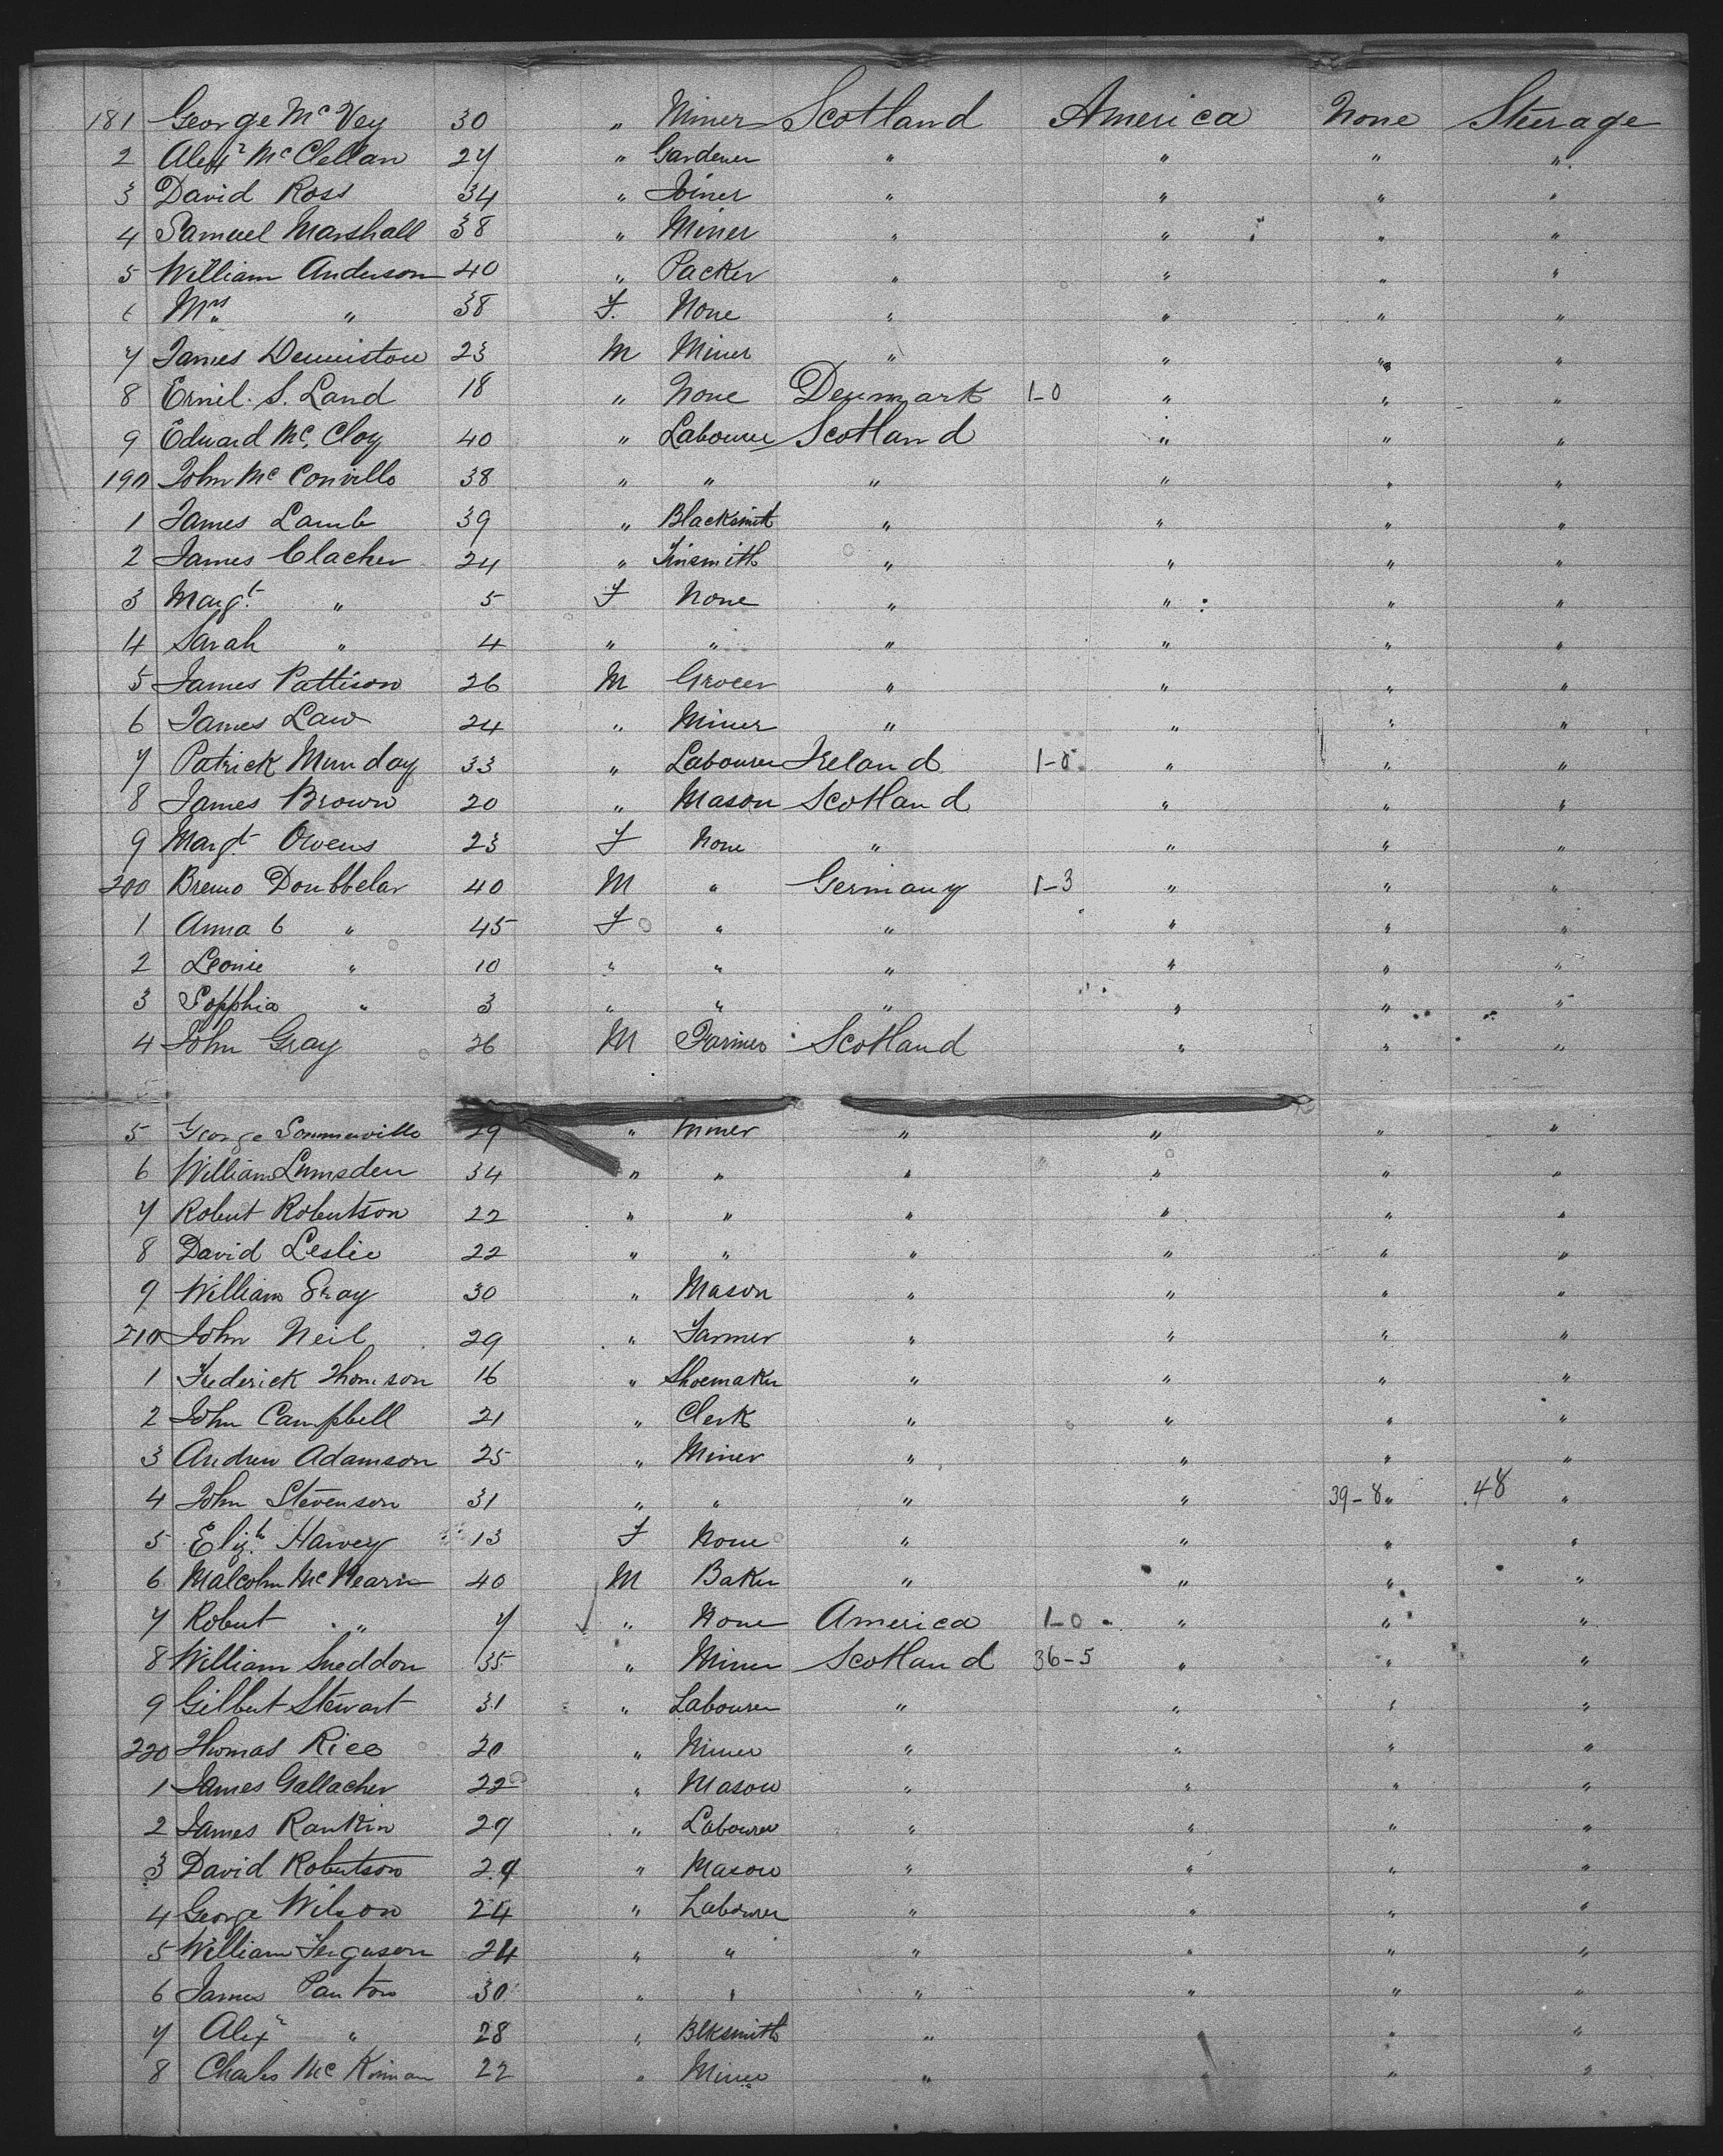 181 George McVey 30 " Miner Scotland America None Steerage
2 Alexr McClellan 27 " Gardener " " " "
3 David Ross 34 " Joiner " " " "
4 Samuel Marshall 38 " Miner " " " "
5 William Anderson 40 " Packer " " " "
6 Mrs " 38 F. None " " " "
7 James Denniston 23 M Miner " " " "
8 Ernil. S. Land 18 " None Denmark 1-0 " " "
9 Edward Mc. Cloy 40 " Labourer Scotland " " "
190 John McConville 38 " " " " " "
1 James Lamb 39 " Blacksmith " " " "
2 James Clacher 24 " Tinsmith " " " "
3 Margt. " 5 F None " " " "
4 Sarah " 4 " " " " " "
5 James Pattison 26 M Grocer " " " "
6 James Law 24 " Miner " " " "
7 Patrick Munday 33 " Labourer Ireland 1-0 " " "
8 James Brown 20 " Mason Scotland " " "
9 Margt. Owens 23 F None " " " "
200 Breno Doubbelar 40 M " Germany 1-3 " " "
1 Anna C " 45 F " " " " "
2 Leonie " 10 " " " " " "
3 Sopphia " 3 " " " " " "
4 John Gray 26 M Farmer Scotland " " "
5 George Sommerville 29 " Miner " " " "
6 William Lumsden 34 " " " " " "
7 Robert Robertson 22 " " " " " "
8 David Leslie 22 " " " " " "
9 William Gray 30 " Mason " " " "
210 John Neil 29 " Farmer " " " "
1 Frederick Thomson 16 " Shoemaker " " " "
2 John Campbell 21 " Clerk " " " "
3 Andrew Adamson 25 " Miner " " " "
4 John Stevenson 31 " " " " 39-8 " .48 "
5 Elizh. Harvey 13 F None " " " "
6 Malcolm 40 M Baker " " " "
7 Robert " 7 " None America 1-0 " " "
8 William Sneddon 35 " Miner Scotland 36-5 " " "
9 Gilbert Stewart 31 " Labourer " " " "
220 Thomas Rice 20 " Miner " " " "
1 James Gallacher 22 " Mason " " " "
2 James Rankin 29 " Labourer " " " "
3 David Robertson 29 " Mason " " " "
4 George Wilson 24 " Labourer " " " "
5 William Ferguson 24 " " " " " "
6 James Panton 30 " " " " " "
7 Alexr " 28 " Blksmith " " " "
8 Charles McKinnan 22 " Miner " " " "